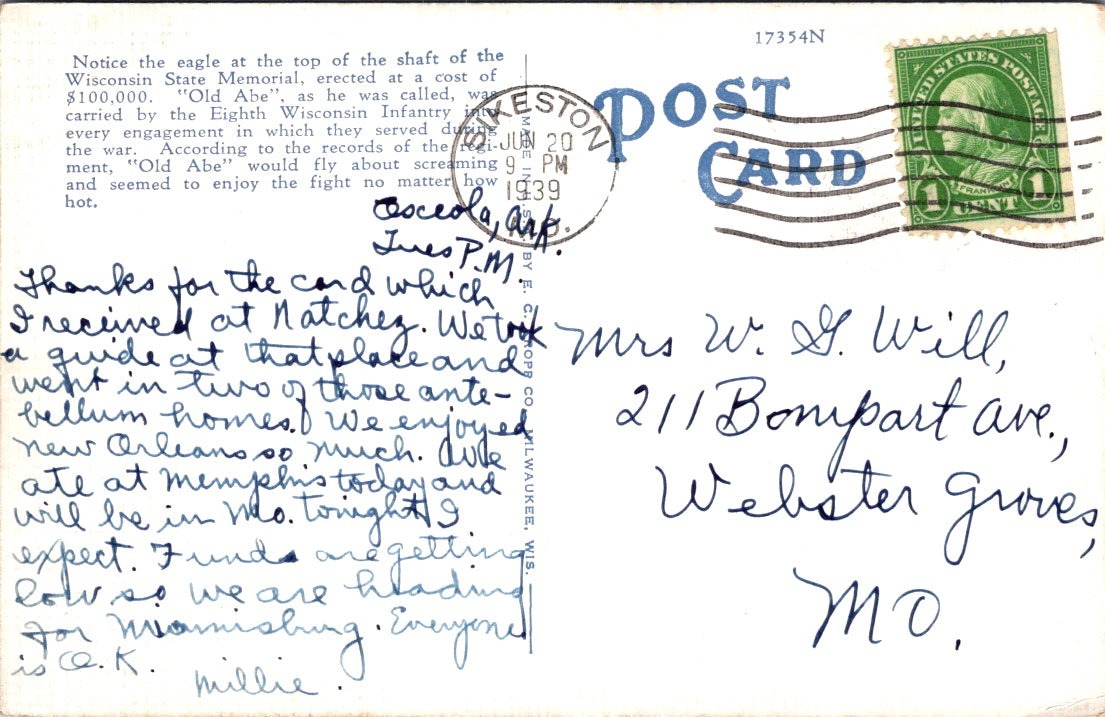 Notice the eagle at the top of the shaft of the
Wisconsin State Memorial, erected at a cost of
$100,000. "Old Abe", as he was called, was
carried by the Eighth Wisconsin Infantry into
every engagement in which they served during
the war. According to the records of the regi-
ment, "Old Abe" would fly about screaming
and seemed to enjoy the fight no matter how
hot.
17354N
POST
CARD
SIKESTON
JUN 20
9 PM
1939
MO.
UNITED STATES POSTAGE
FRANKLIN
1 CENT 1
MADE IN U.S.A. BY E. C. KROPP CO., MILWAUKEE, WIS.
Osceola, Ark.
Tues P.M.
Thanks for the card which
I received at Natchez. We took
a guide at that place and
went in two of those ante-
bellum homes. We enjoyed
New Orleans so much. We
ate at Memphis today and
will be in Mo. tonight I
expect. Funds are getting
low so we are heading
for Miamisburg. Everyone
is O.K.
Millie.
Mrs W. G. Will,
211 Bompart Ave.,
Webster Groves,
MO.